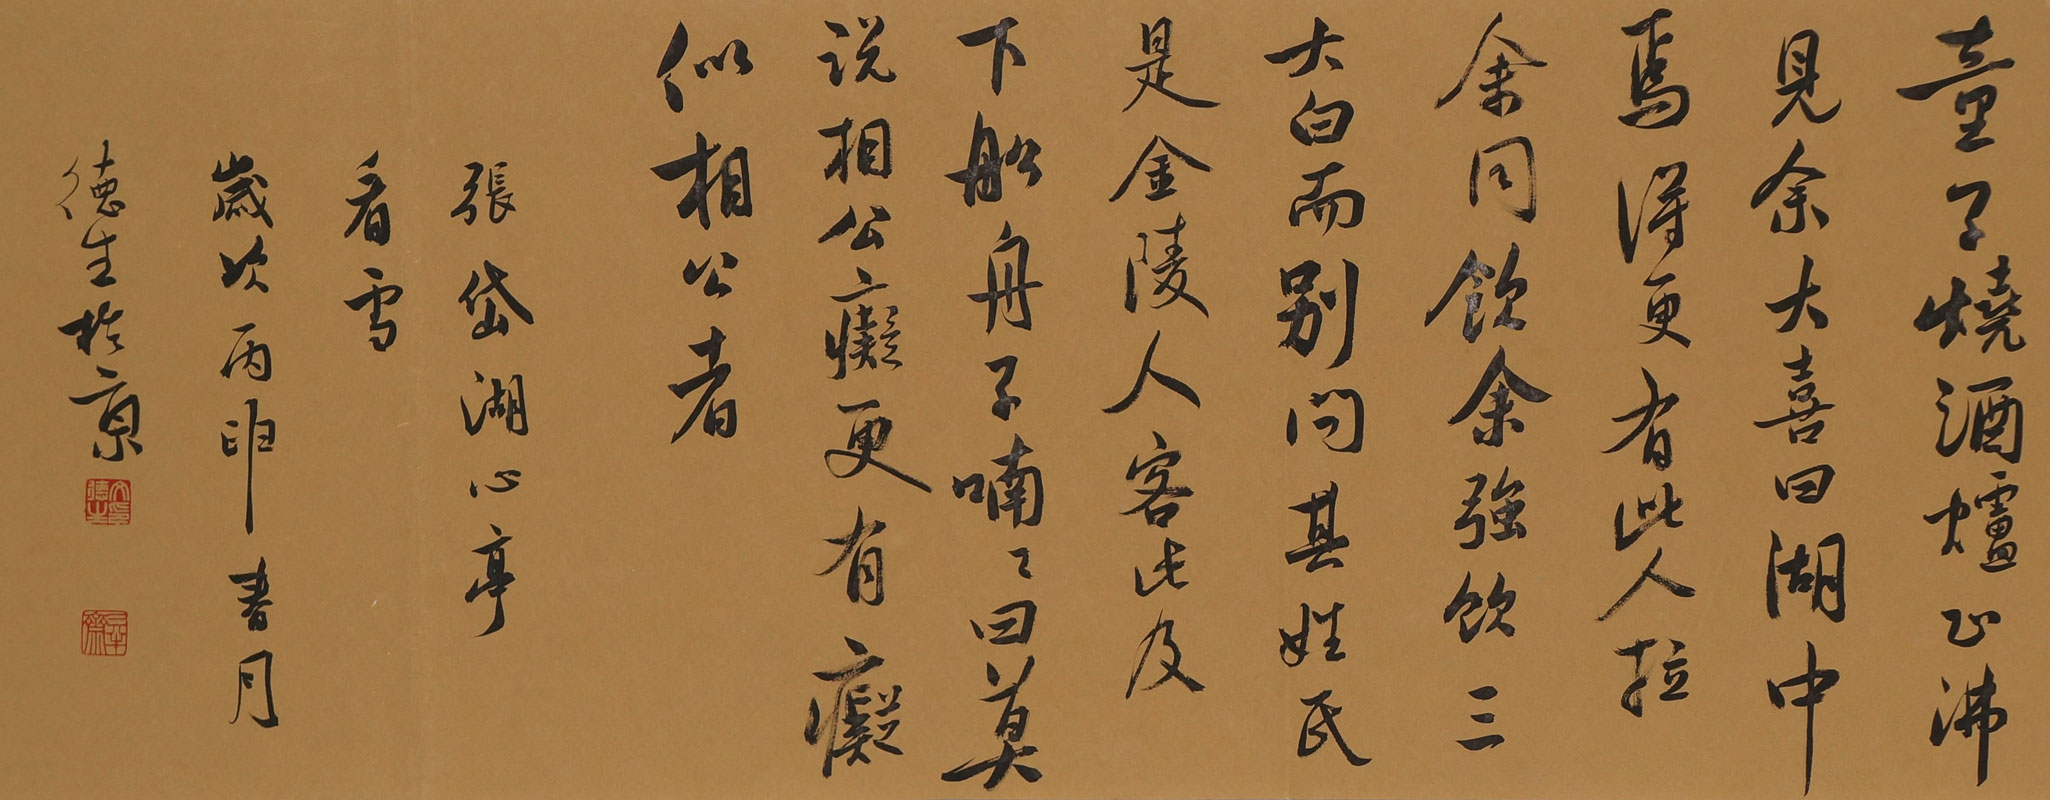 童子燒酒爐正沸
見余大喜曰湖中
焉得更有此人拉
余同飲余強飲三
大白而别問其姓氏
是金陵人客此及
下船舟子喃〻曰莫
说相公癡更有癡
似相公者
張岱湖心亭
看雪
歲次丙申春月
德生於京